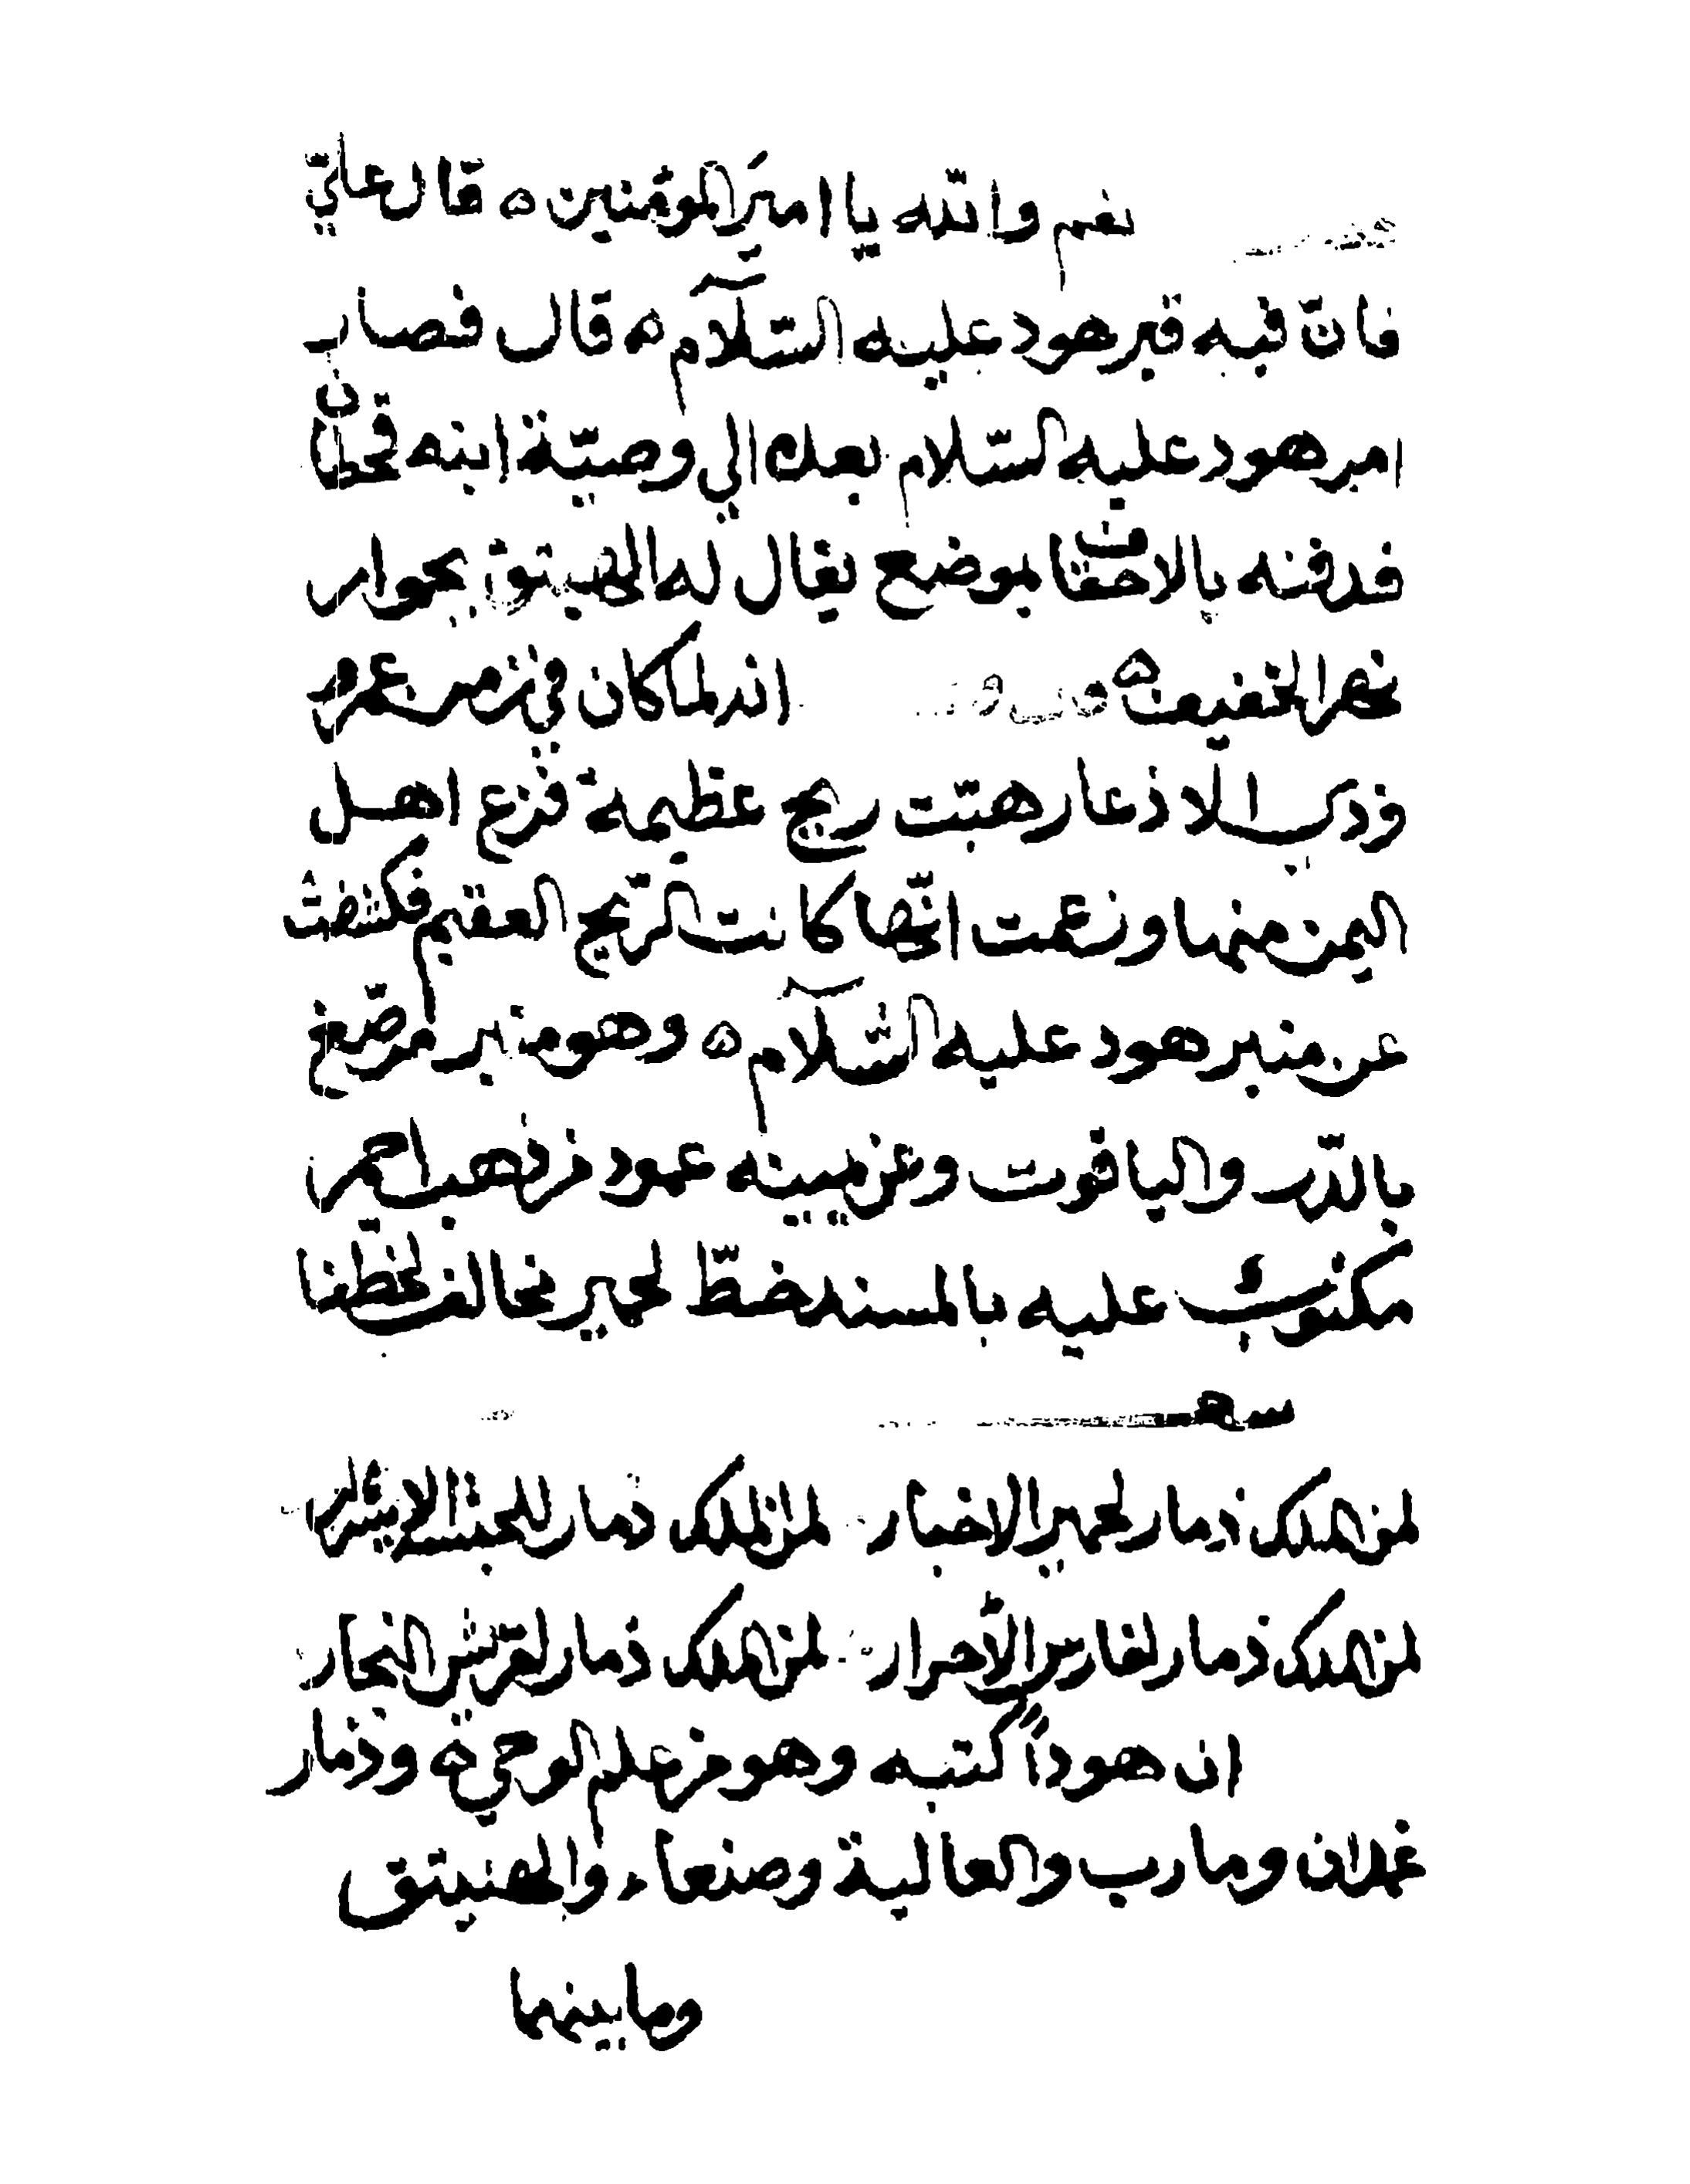 نعم والله يا امير المومنين ه قال علي
فان فيه قبر هود عليه السّلام ه قال فصار
امر هود عليه السّلام بعده الي وصيّة ابنه قحطان
فدفنه بالاحقاف بموضع يقال له الهنيبق بجوار
نهر الخفيف ه انه لما كان في زمن عمرو
ذي الاذعار هبّت ريح عظيمة فزع اهل
اليمن منها وزعمت انّها كانت الرّيح العقيم فكشفت
عن منبر هود عليه السّلام ه وهو منبر مرصّع
بالدّر والياقوت وعن يمينه عمود من ذهب احمر
مكتوب عليه بالمسند خطّ لحمير مخالف لخطّنا
لمن الملك ذمار لحمير الاخيار لمن الملك ذمار للحبشة الاشرار
لمن الملك ذمار لفارس الأحرار لمن الملك ذمار لقريش التجار
ان هوداً كتبه وهو من علم الوحي ه وذمار
غمدان ومارب والعالية وصنعاء
وما بينهما